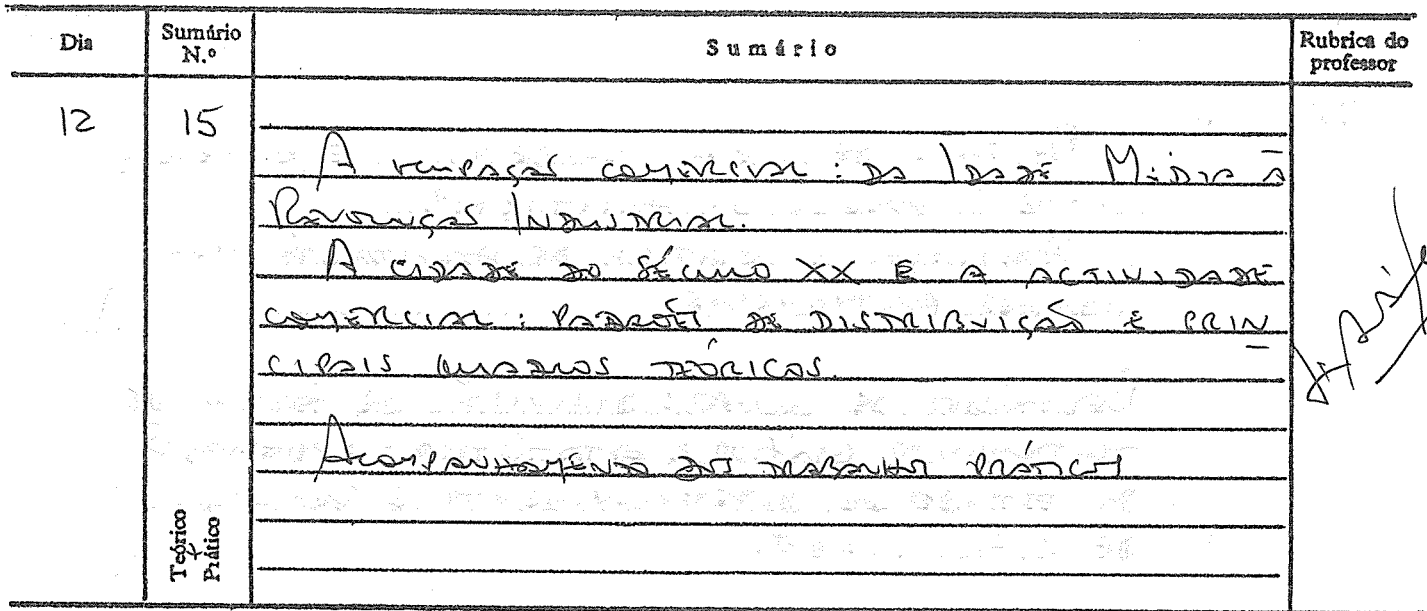 Dia Sumário N.º Sumário Rubrica do professor
12 15
A comercial: da Idade Média à
Revolução Industrial.
A cidade do século XX e a actividade
comercial: padrões de distribuição e prin
cipais quadros teóricos.
Acompanhamento dos trabalhos práticos
Teórico + Prático